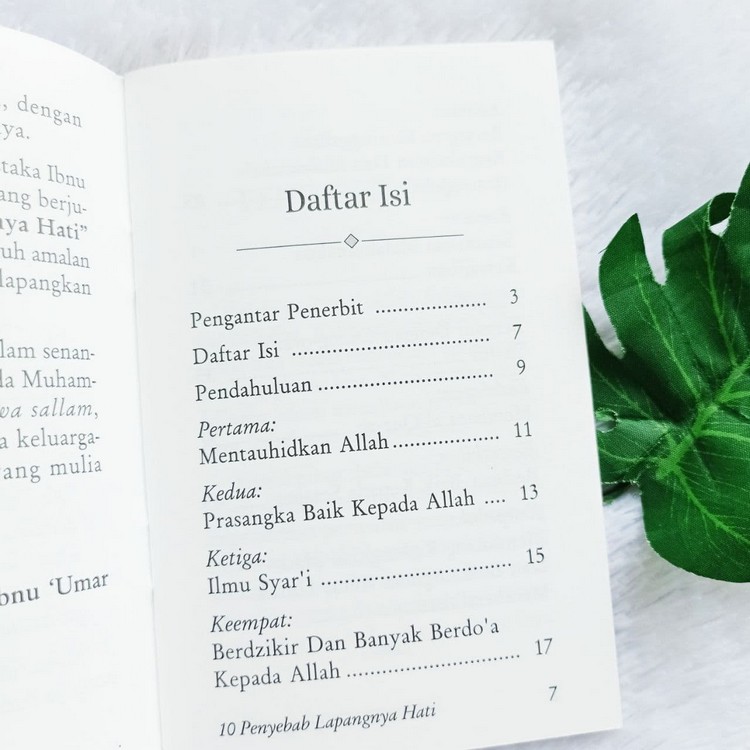 , dengan
ya.
taka Ibnu
ang berju-
ya Hati"
uh amalan
lapangkan
lam senan-
la Muham-
wa sallam,
a keluarga-
yang mulia
bnu ‘Umar
Daftar Isi
Pengantar Penerbit .................... 3
Daftar Isi .................................. 7
Pendahuluan .............................. 9
Pertama:
Mentauhidkan Allah .................. 11
Kedua:
Prasangka Baik Kepada Allah .... 13
Ketiga:
Ilmu Syar'i ................................ 15
Keempat:
Berdzikir Dan Banyak Berdo'a
Kepada Allah ............................. 17
10 Penyebab Lapangnya Hati 7